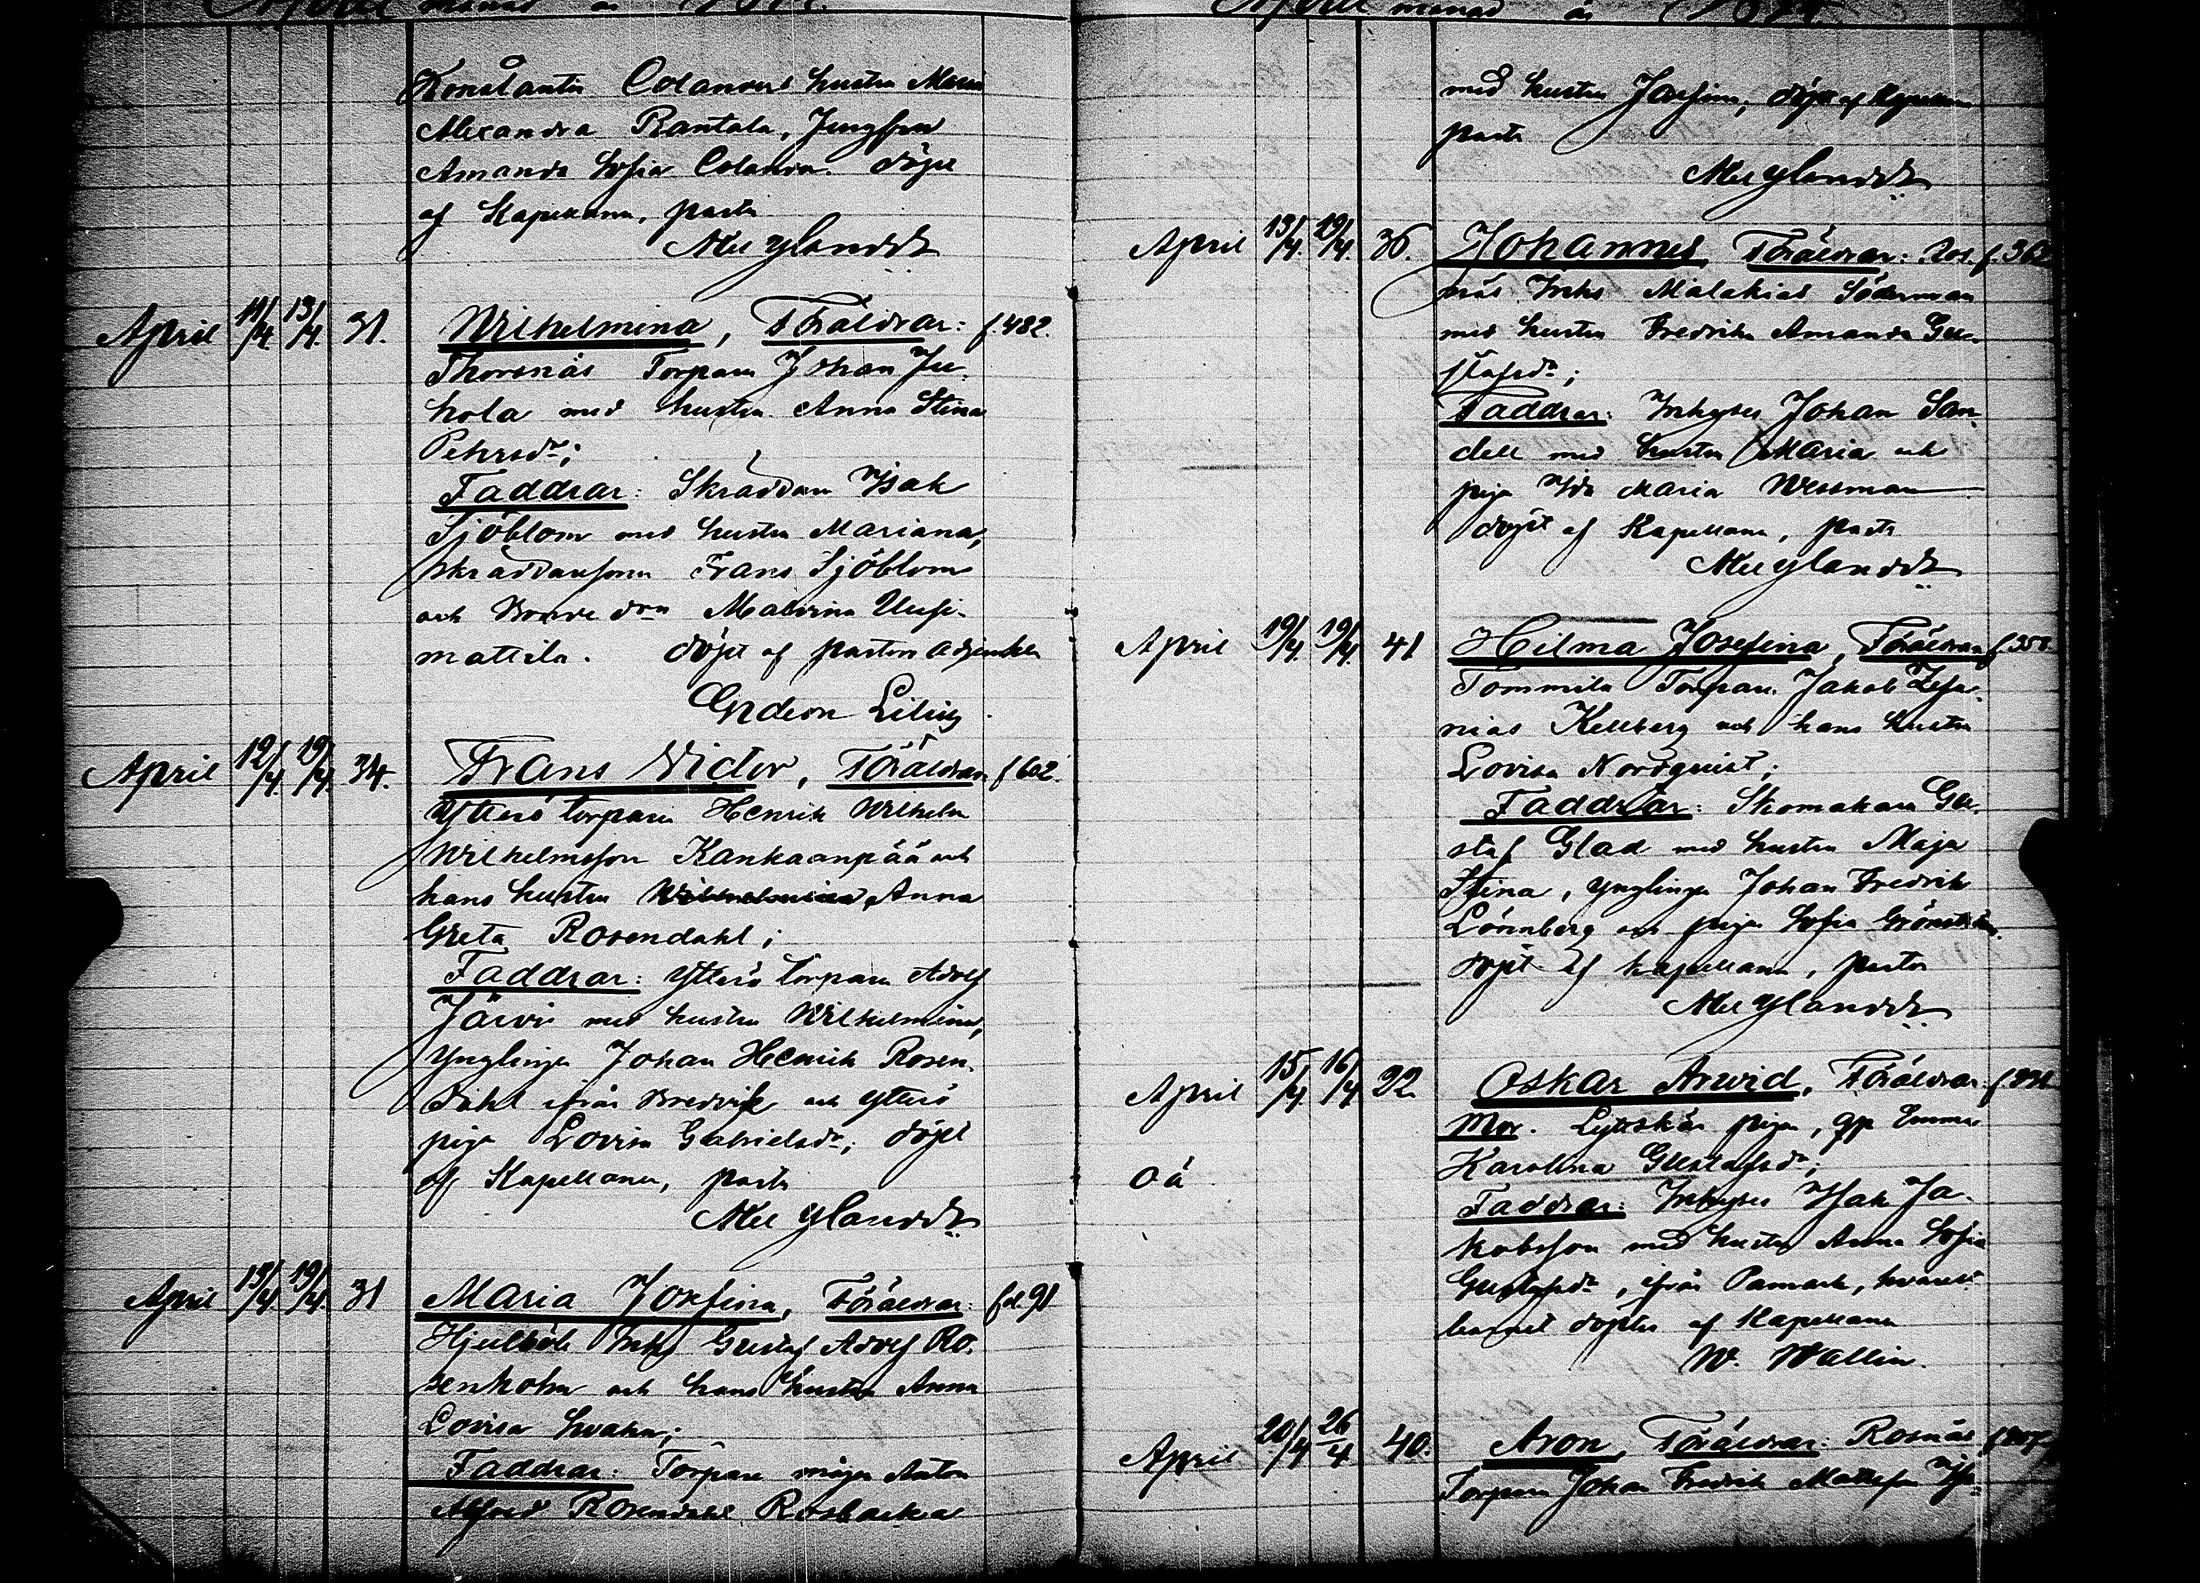 April månad år
Konstantin Colanders hustru Maria
Alexandra Rantala, Jungfrun
Amanda Sofia Colander. döpt
af Kapellanen, pastor
Nylandd
April 11/4. 13/4. 31. Wilhelmina, Föräldrar: f.482.
Thorsnäs Torparen Johan Ju-
hola med hustru Anna Stina
Pehrsdr;
Faddrar: Skräddaren Isak
Sjöblom med hustru Mariana,
skräddaresonen Frans Sjöblom
och Bondedon Malvina Uusi-
mattila. döpt af pastors adjunkten
Gideon Lilius.
April 12/4. 19/4. 34. Frans Victor, Föräldrar f602.
Ytterö torparen Henrik Wilhelm
Wilhelmsson Kankaanpää och
hans hustru Wilhelmina Anna
Greta Rosendahl;
Faddrar: Ytterö torparen Adolf
Järvi med hustru Wilhelmina,
Ynglingen Johan Henrik Rosen-
dahl ifrån Bredvik och Ytterö
pigan Lovisa Gabrielsdr; döpt
af Kapellanen, pastor
Nylandd
April 13/4 19/4. 31 Maria Josefina, Föräldrar: fol.91
Hjulböle Inhs Gustaf Adolf Ro-
senholm och hans hustru Anna
Lovisa Svahn;
Faddrar: Torpare mågen Anton
Alfred Rosendahl Rosbacka
April månad år
med hustru Josefina, döpt af Kapellanen
pastor
Nylandd
April 13/4. 19/4. 36. Johannes, Föräldrar: Ros- f.362
näs Inhs Malakias Söderman
med hustru Fredrika Amanda Gu-
stafsdr;
Faddrar: Inhyses Johan San-
dell med hustru Maria och
pigan Ida Maria Wessman
döpt af Kapellanen, pastor
Nylandd
April 19/4. 19/4. 41 Hilma Josefina, Föräldrar f.358.
Tommila Torparen Jakob Zefa-
nias Kellberg och hans hustru
Lovisa Nordquist;
Faddrar: Skomakaren Gu-
staf Glad med hustru Maja
Stina, ynglingen Johan Fredrik
Lönnberg och pigan Sofia Grönström
döpt af kapellanen, pastor
Nylandd
April 15/4. 16/4 22 Oskar Arvid, Föräldrar
Mor. Lyttskär pigan, qp Emma
oä Karolina Gustafsdr;
Faddrar: Inhyses Isak Ja-
kobsson med hustru Anna Sofia
Gustafsdr, ifrån Pamark, hvarest
barnet döptes af Kapellanen
W. Wallin.
April 20/4 26/4 40. Aron, Föräldrar: Rosnäs
Torparen Johan Fredrik Mattsson